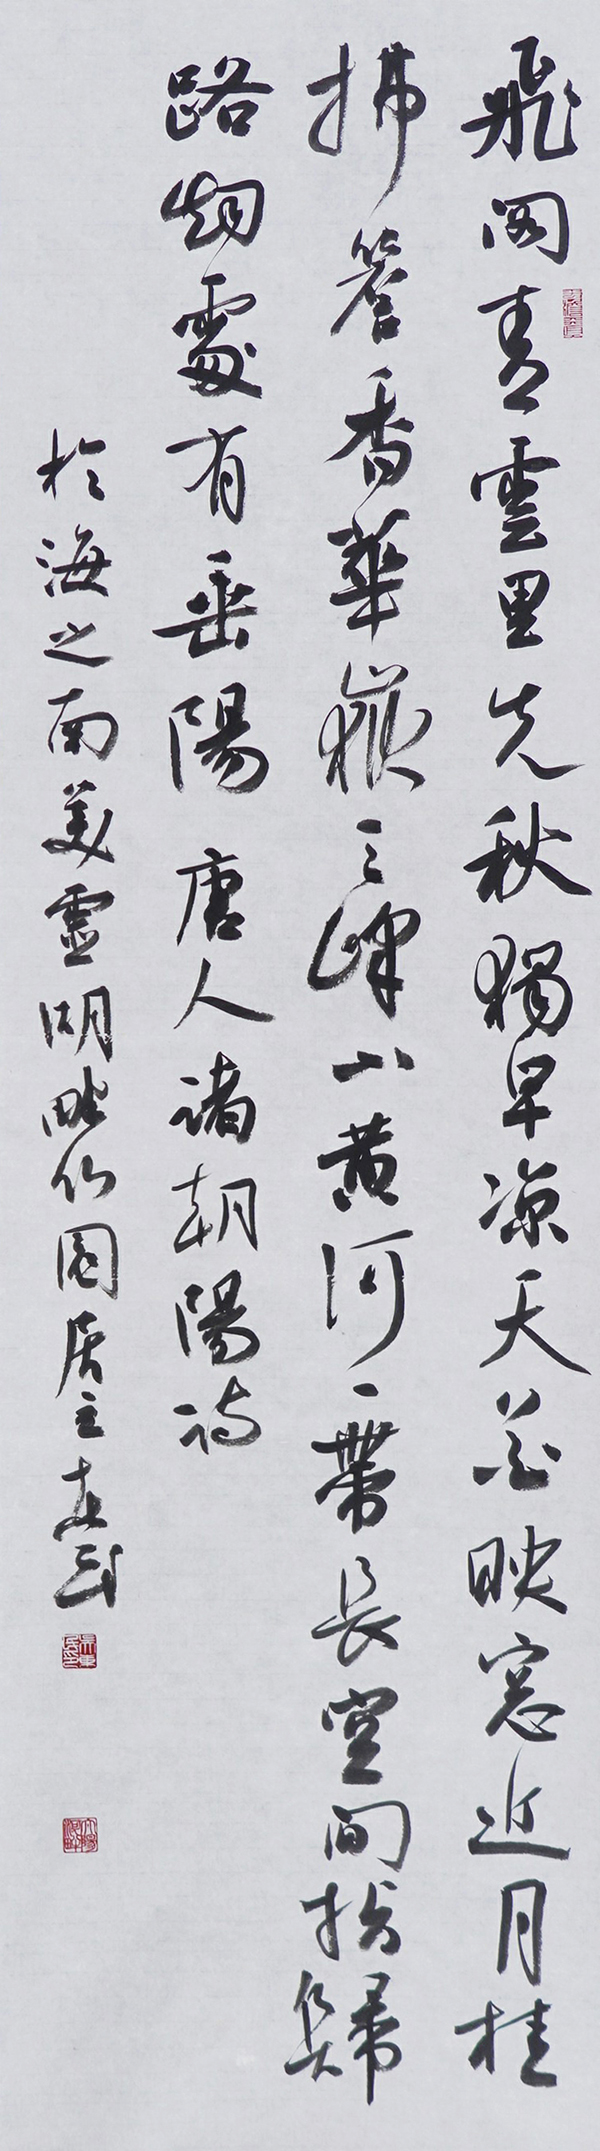 飛閣青雲里先秋獨早涼天花映窓近月桂
拂簷香華嶽三峰小黄河一帶長空間指歸
路烟處有垂陽 唐人诸朝陽诗
於海之南美靈明畔竹園居主